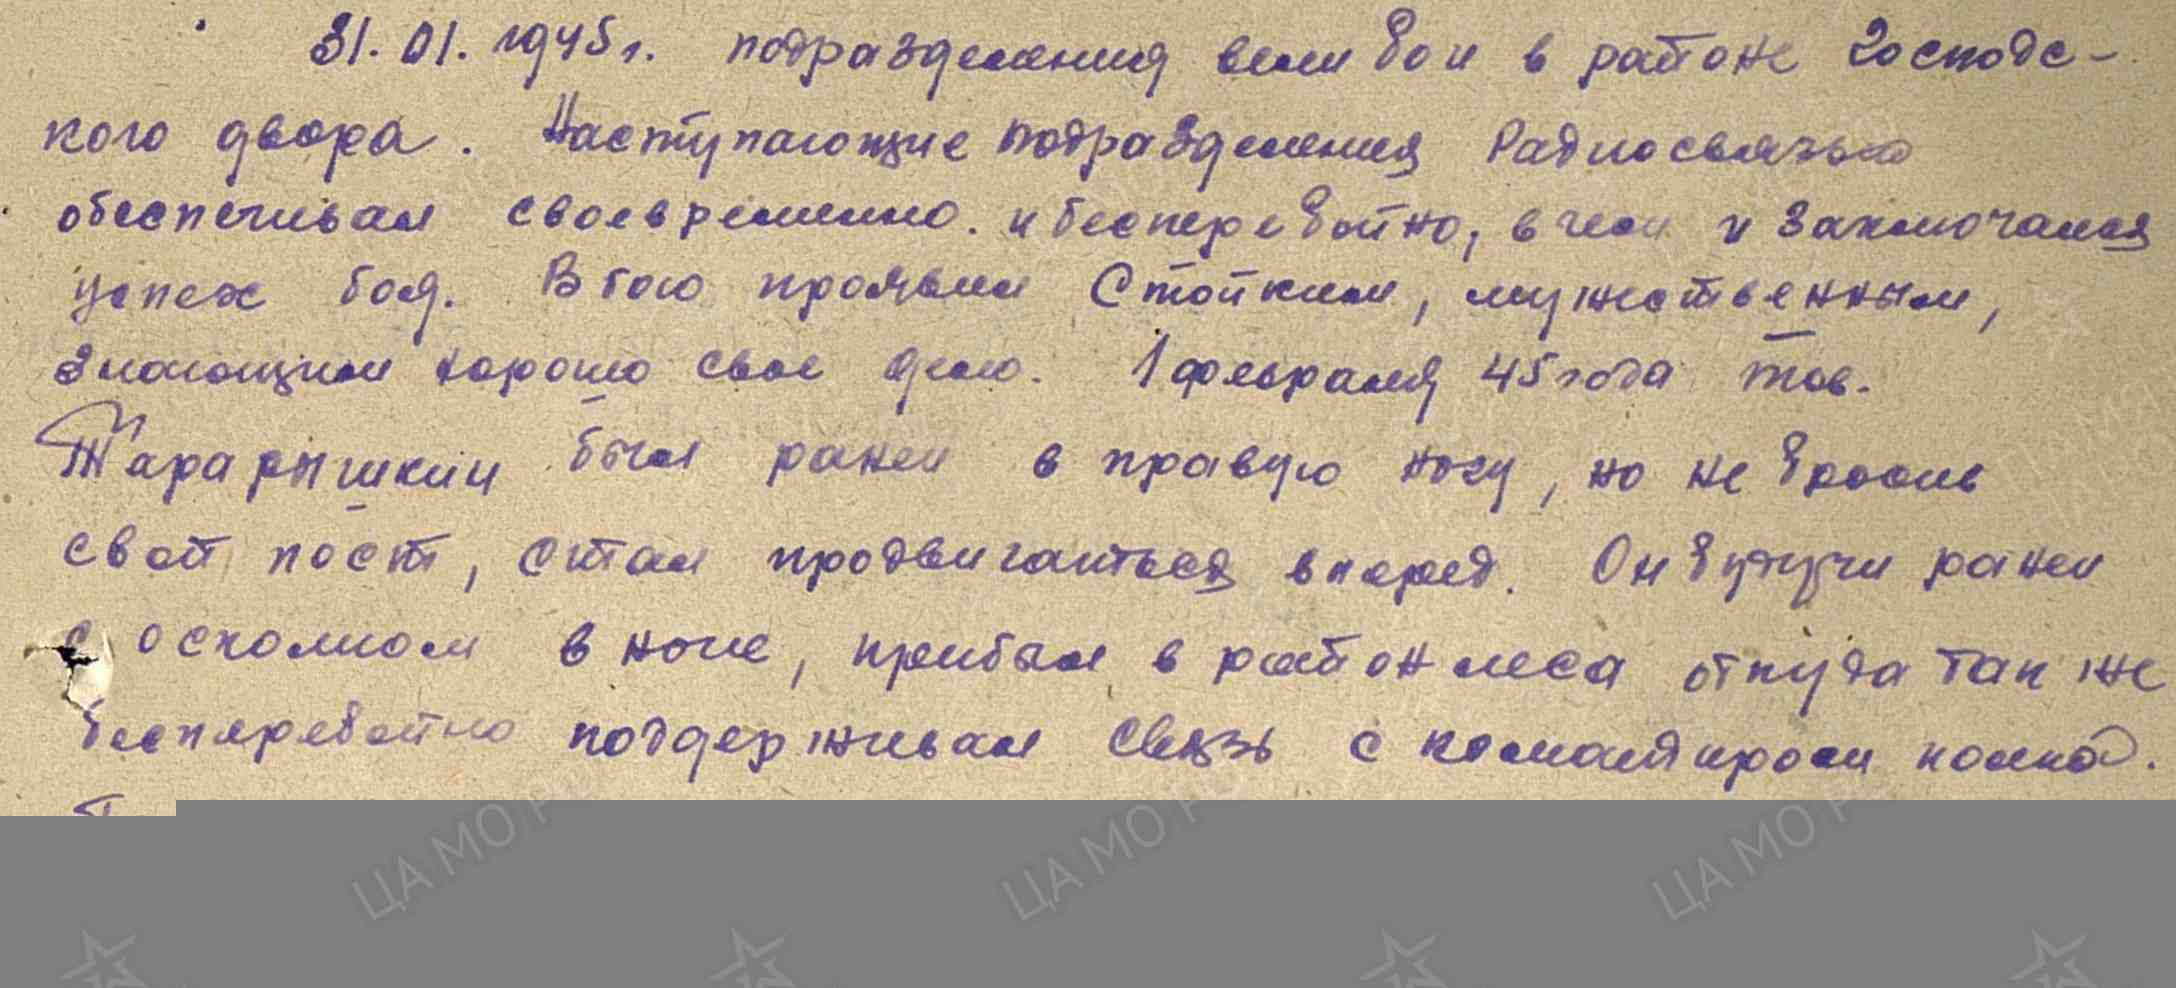 31.01.1945г. подразделения вели бои в районе Господс-
кого двора. Наступающие подразделения Радиосвязью
обеспечивал своевременно. и бесперебойно, в чем и заключался
успех боя. В бою проявил Стойким, мужественным,
знающим хорошо свое дело. 1 февраля 45 года тов.
Тарарышкин был ранен в правую ногу, но не бросив
свой пост, стал продвигаться вперед. Он будучи ранен
с осколком в ноге, прибыл в район леса откуда так же
бесперебойно поддерживал связь с командиром полка.
ЦА МО ЦА МО ЦА МО